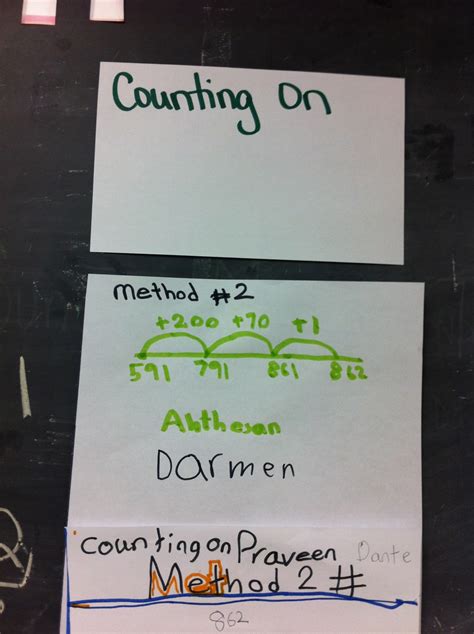 Counting On
method #2
+200 +70 +1
591 791 861 862
Ahthesan
Darmen
counting on Praveen Dante
Method 2 #
862